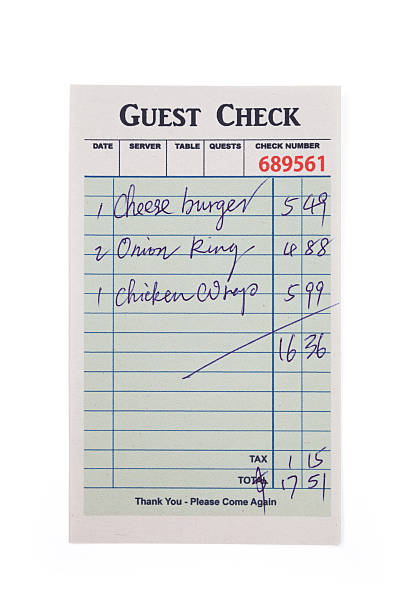 GUEST CHECK
DATE SERVER TABLE QUESTS CHECK NUMBER
689561
1 Cheese burger 5 49
2 Onion Ring 4 88
1 Chicken Wrap 5 99
16 36
TAX 1 15
TOTAL 17 51
Thank You - Please Come Again